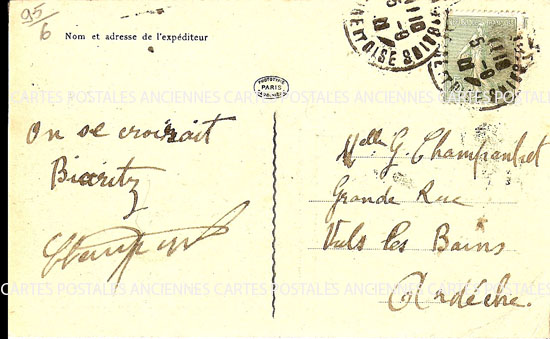 95
6
Nom et adresse de l'expéditeur
PARIS
CARTES POSTALES ANCIENNES CARTES POSTALES ANCIENNES CARTES POSTALES ANCIENNES
On se croirait
Biaritz
Melle G. Champanhet
Grande Rue
Vals les Bains
Ardèche.
CARTES POSTALES ANCIENNES CARTES POSTALES ANCIENNES CARTES POSTALES ANCIENNES